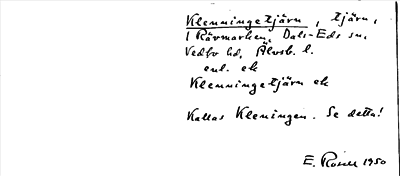 Klenningetjärn, tjärn,
i Rävmarken, Dals-Eds sn,
Vedbo hd, Älvsb. l.
enl. ek
Klenningetjärn ek
Kallas Kleningen. Se detta!
E. Rosell 1950